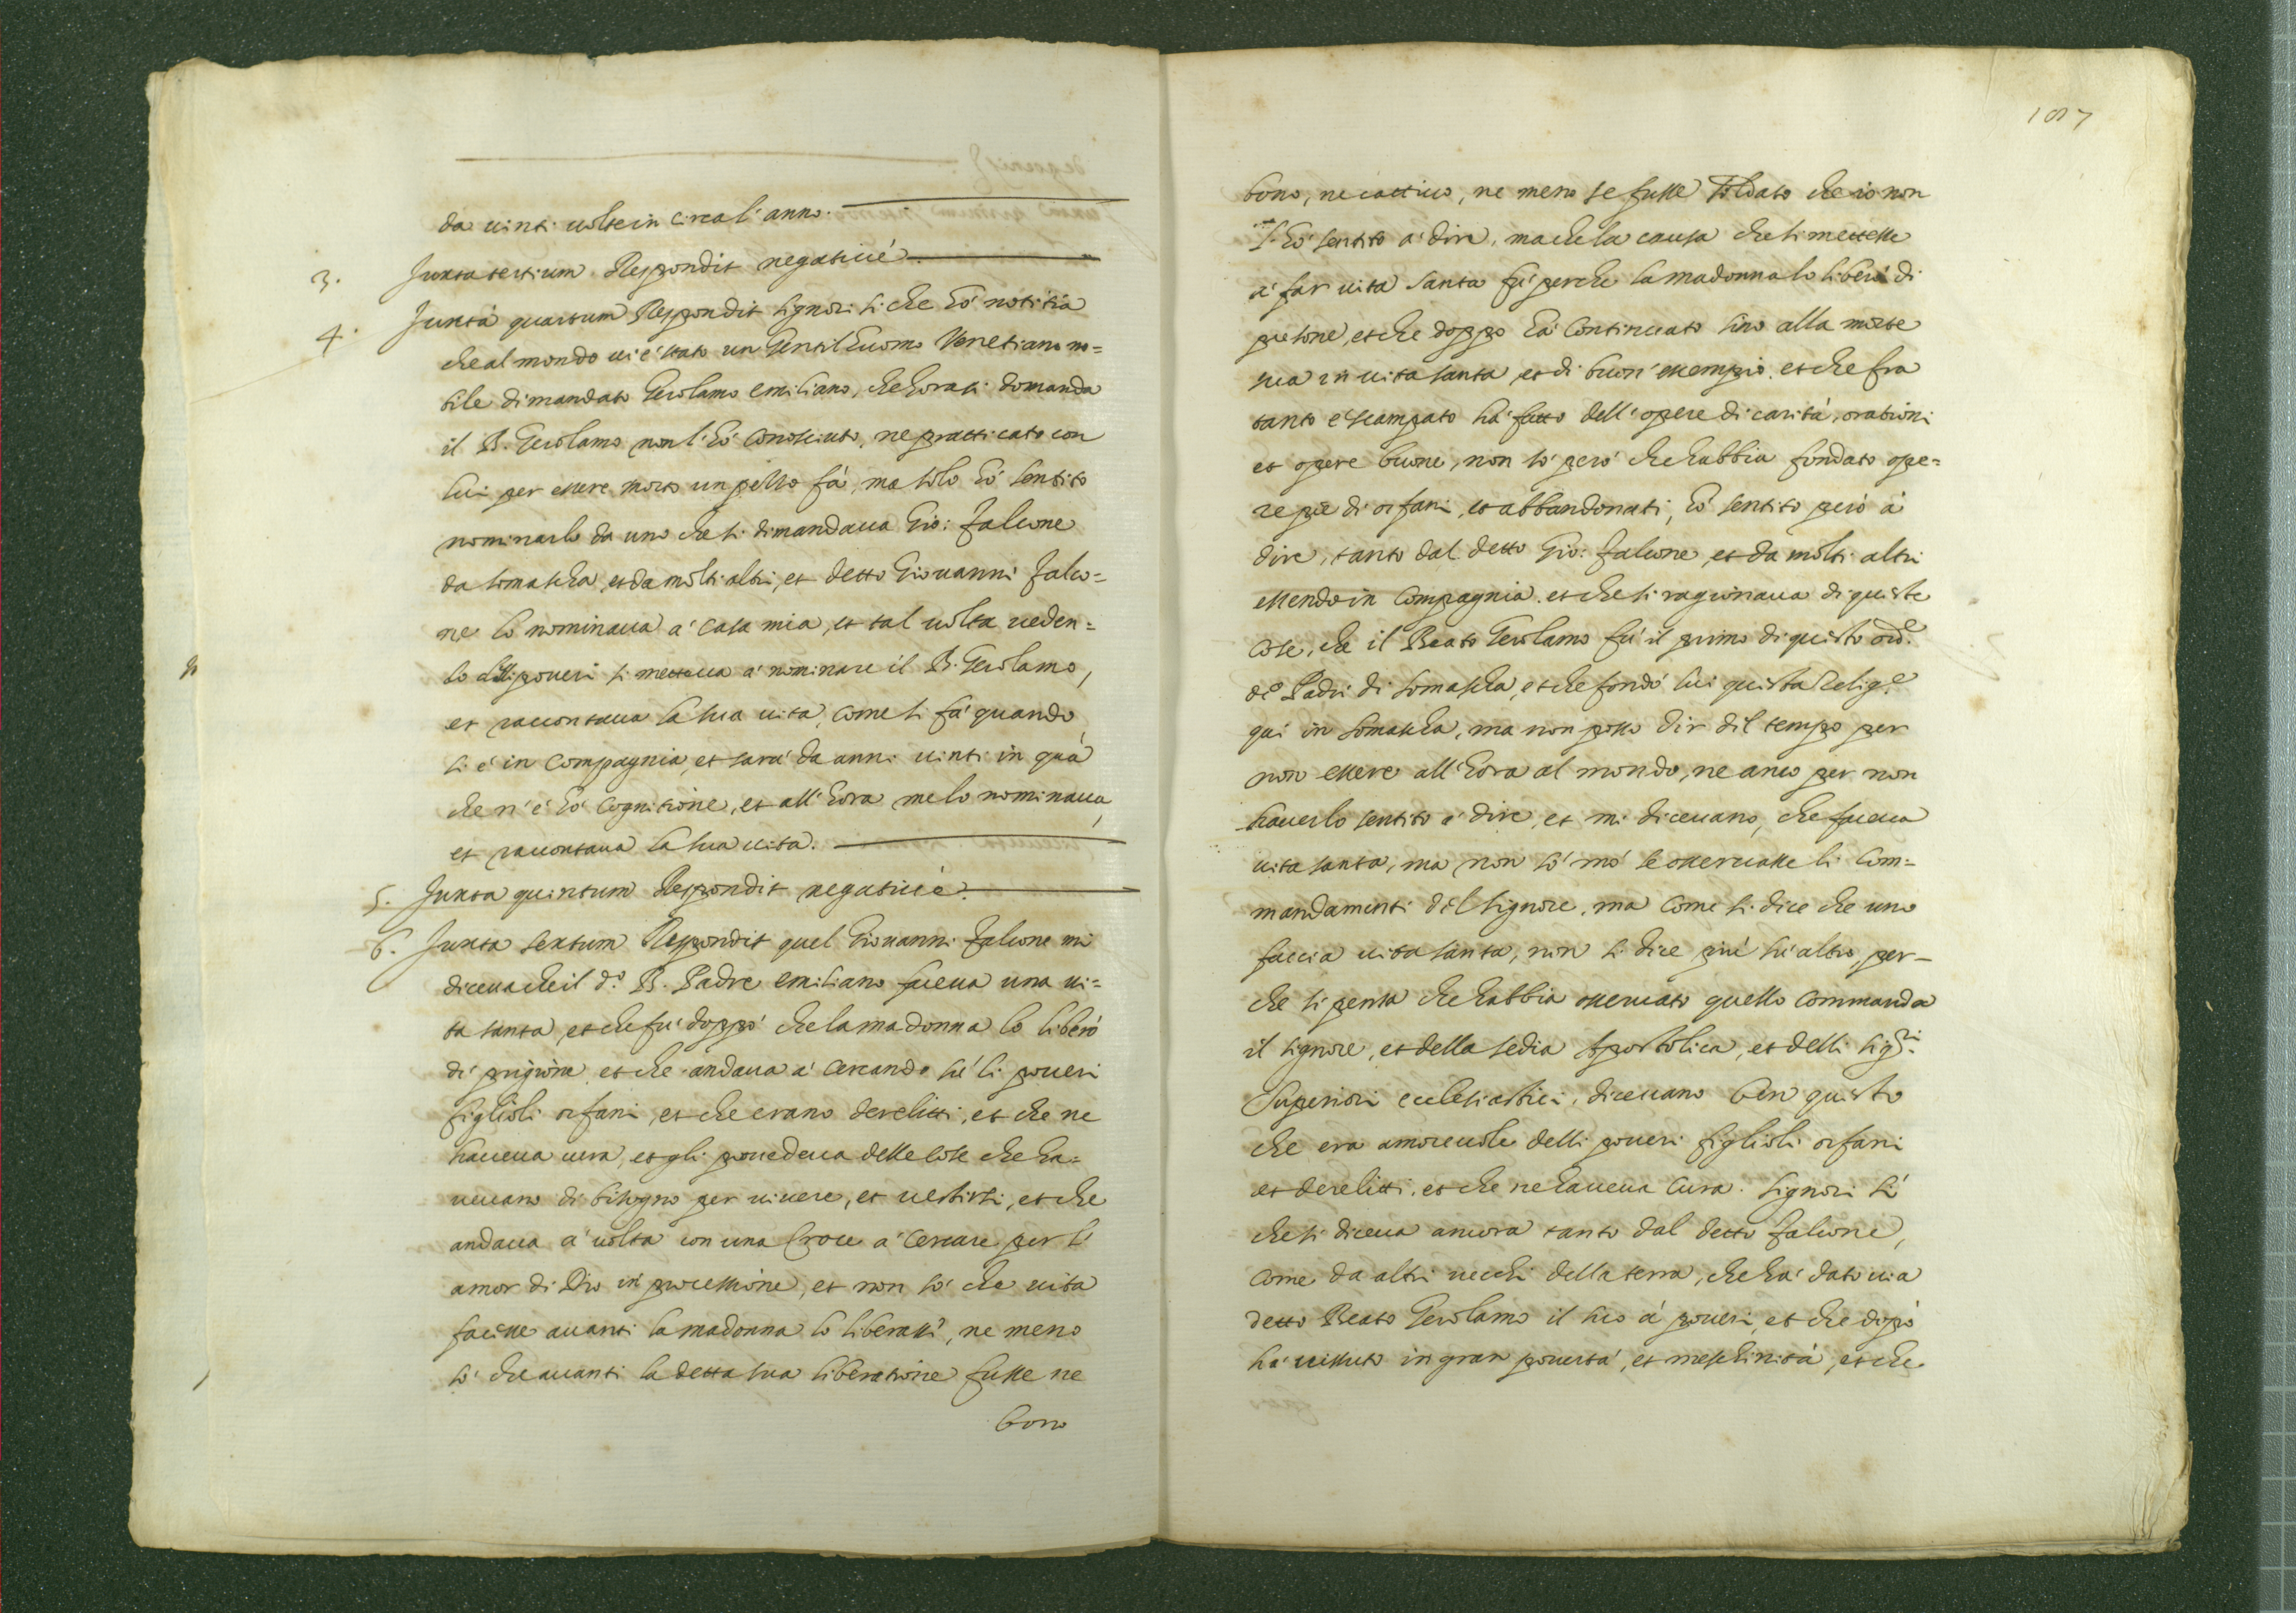 da uinti uolte in circa l'anno.
3. Juxta tertium Respondit negatiuè.
4. Juxta quartum Respondit signori si che hò notitia
che al mondo ui è stato un Gentilhuomo Venetiano no=
bile dimandato Gerolamo emiliano, che hora si domanda
il B. Gerolamo non l'hò conosciuto, ne pratticato con
lui per essere morto un pezzo fà, ma solo hò sentito
nominarlo da uno che si dimandaua Gio: falcone
da somascha, et da molti altri, et detto Giouanni falco=
ne lo nominaua à casa mia, et tal uolta ueden=
do delli poueri si metteua à nominare il B. Gerolamo,
et raccontaua la sua uita, come si fà quando
si è in compagnia, et sarà da anni uinti in quà
che n'è hò cognitione, et all'hora me lo nominaua,
et raccontaua la sua uita.
5. Juxta quintum Respondit negatiuè.
6. Juxta sextum Respondit quel Giouanni falcone mi
diceua che il d.º B. Padre emiliano faceua una ui=
ta santa, et che fù doppò che la madonna lo liberò
di prigione, et che andaua à cercando sù li poueri
figlioli orfani, et che erano derelitti, et che ne
haueua cura, et gli prouedeua delle cose che ha=
ueuano di bisogno per uiuere, et uestirsi, et che
andaua à uolta con una Croce à cercare per l'
amor di Dio in processione, et non sò che uita
facesse auanti la madonna lo liberassi, ne meno
sò che auanti la detta sua liberatione fusse ne
bono
187
bono, ne cattiuo, ne meno se fusse soldato che io non
l'hò sentito à dire, ma che la causa che si mettesse
à far uita santa fù perche la madonna lo liberò di
pregione, et che doppo hà continuato sino alla morte
sua in uita santa, et di buon essempio, et che fra
tanto è scampato hà fatto dell'opere di carità, orationi
et opere buone, non sò però che habbia fondato ope=
re pie di orfani, et abbandonati, hò sentito però à
dire, tanto dal detto Gio: falcone, et da molti altri
essendo in compagnia, et che si ragionaua di queste
cose, che il Beato Gerolamo fù il primo di questo ord.e
de Padri di somascha, et che fondò lui questa Relig.e
quì in somascha, ma non posso dir dil tempo per
non essere all'hora al mondo, ne anco per non
hauerlo sentito à dire, et mi diceuano, che faceua
uita santa, ma non sò mò se osseruasse li com=
mandamenti del signore, ma come si dice che uno
faccia uita santa, non si dice più sù altro, per-
che si pensa che habbia osseruato quello commanda
il signore, et della sedia Apostolica, et delli sig.ri
Superiori ecclesiastici, diceuano ben questo
che era amoreuole delli poueri figlioli orfani
et derelitti, et che ne haueua cura. Signori sì
che si diceua ancora tanto dal detto falcone,
come da altri uecchi della terra, che hà dato uia
detto Beato Gerolamo il suo à poueri, et che dopò
hà uissuto in gran pouertà, et meschinità, et che